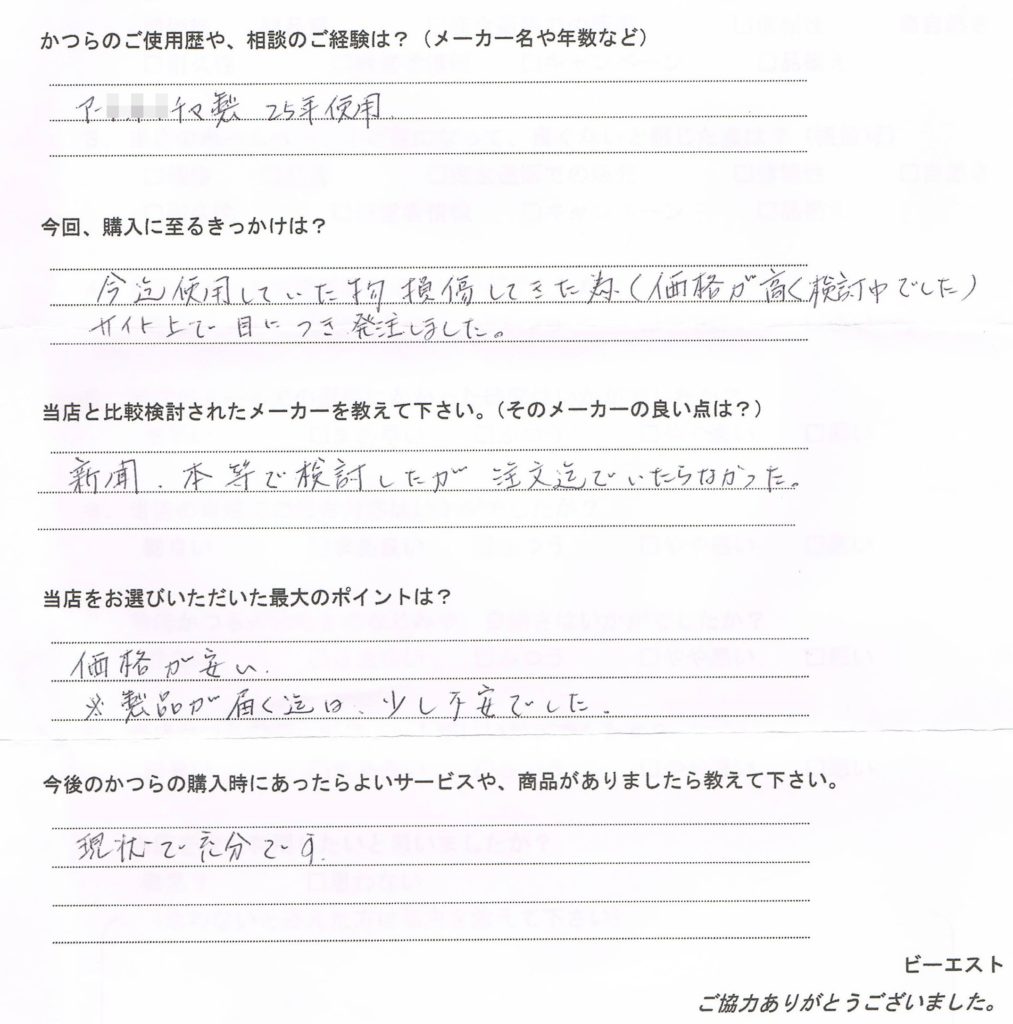 かつらのご使用歴や、相談のご経験は？（メーカー名や年数など）
アー チャ製 25年使用
今回、購入に至るきっかけは？
今迄使用していた物損傷してきた為（価格が高く検討中でした）
サイト上で目につき発注しました。
当店と比較検討されたメーカーを教えて下さい。（そのメーカーの良い点は？）
新聞、本等で検討したが 注文迄でいたらなかった。
当店をお選びいただいた最大のポイントは？
価格が安い.
※製品が届く迄は、少し不安でした.
今後のかつらの購入時にあったらよいサービスや、商品がありましたら教えて下さい。
現状で充分です.
ビーエスト
ご協力ありがとうございました。